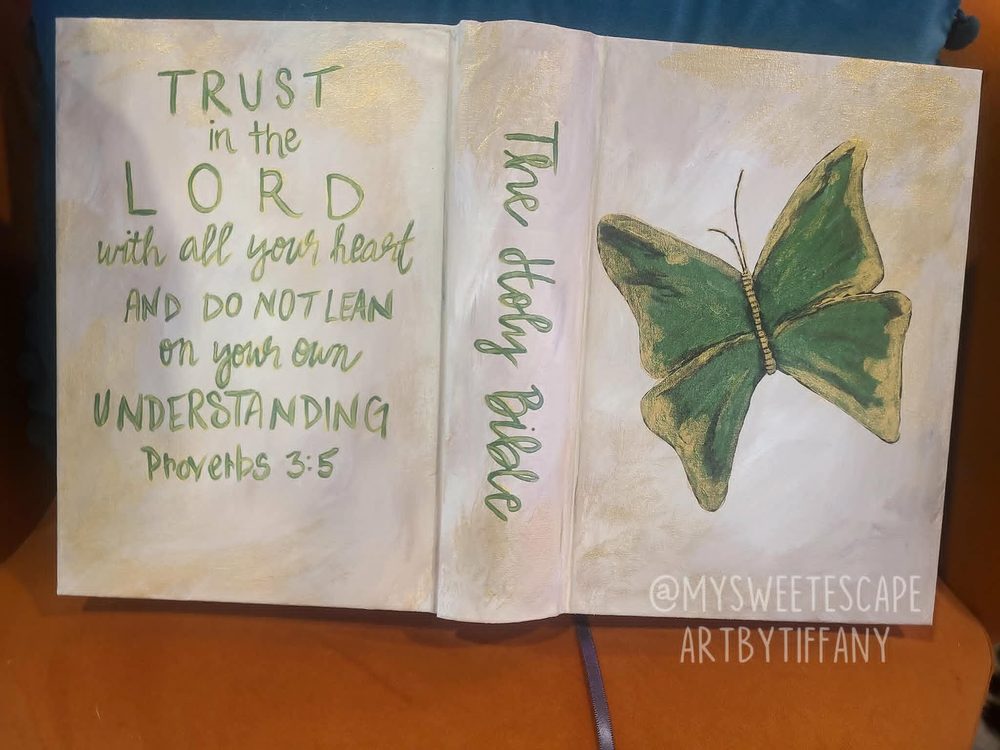 TRUST
in the
LORD
with all your heart
AND DO NOT LEAN
on your own
UNDERSTANDING
Proverbs 3:5
The Holy Bible
@MYSWEETESCAPE
ARTBYTIFFANY